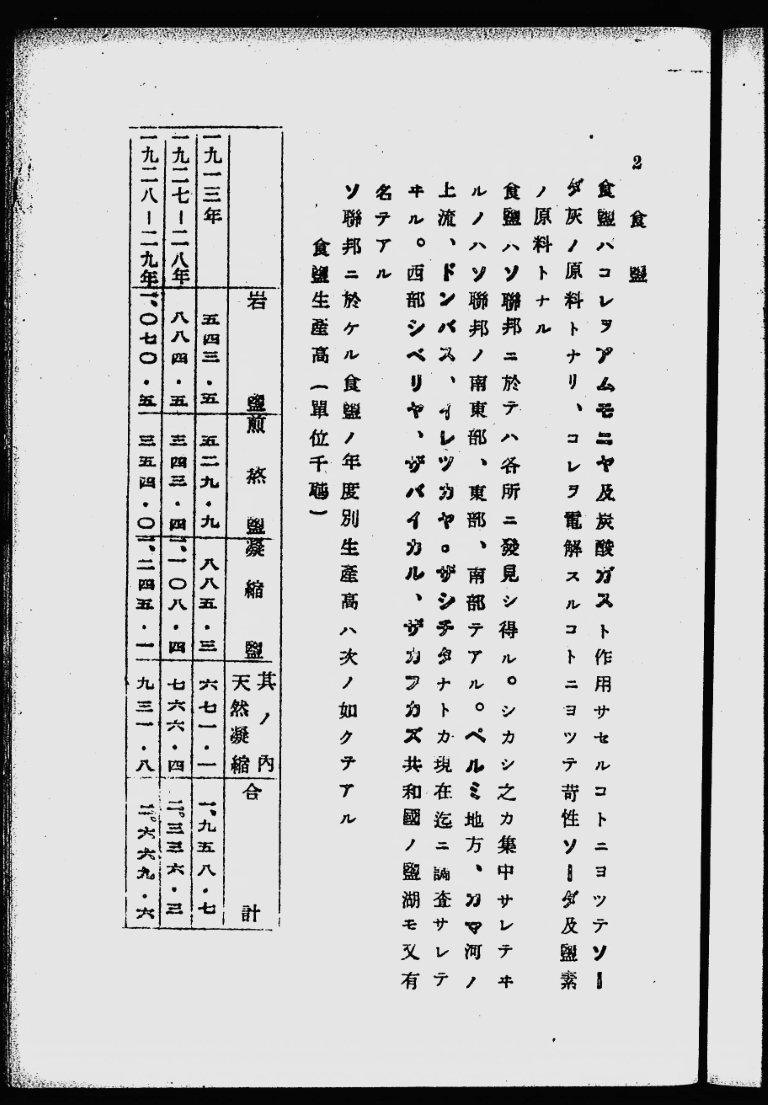 2 食鹽
食鹽ハコレヲアムモニヤ及炭酸ガスト作用サセルコトニヨツテソー
ダ灰ノ原料トナリ、コレヲ電解スルコトニヨツテ苛性ソーダ及鹽素
ノ原料トナル
食鹽ハソ聯邦ニ於テハ各所ニ發見シ得ル。シカシ之カ集中サレテヰ
ルノハソ聯邦ノ南東部、東部、南部テアル。ペルミ地方、カマ河ノ
上流、ドンバス、イレツカヤ。ザシチタナトカ現在迄ニ調査サレテ
ヰル。西部シベリヤ、ザバイカル、ザカフカズ共和國ノ鹽湖モ又有
名テアル
ソ聯邦ニ於ケル食鹽ノ年度別生產高ハ次ノ如クテアル
食鹽生產高(單位千瓲)
岩鹽 煎熬鹽 凝縮鹽 其ノ內天然凝縮 合計
一九一三年 五四三・五 五二九・九 八八五・三 六七一・一 一、九五八・七
一九二七ー二八年 八八四・五 三四三・四 一、一〇八・四 七六六・四 二、三三六・三
一九二八ー二九年 一、〇七〇・五 三五四・〇 一、二四五・一 九三一・八 二、六六九・六